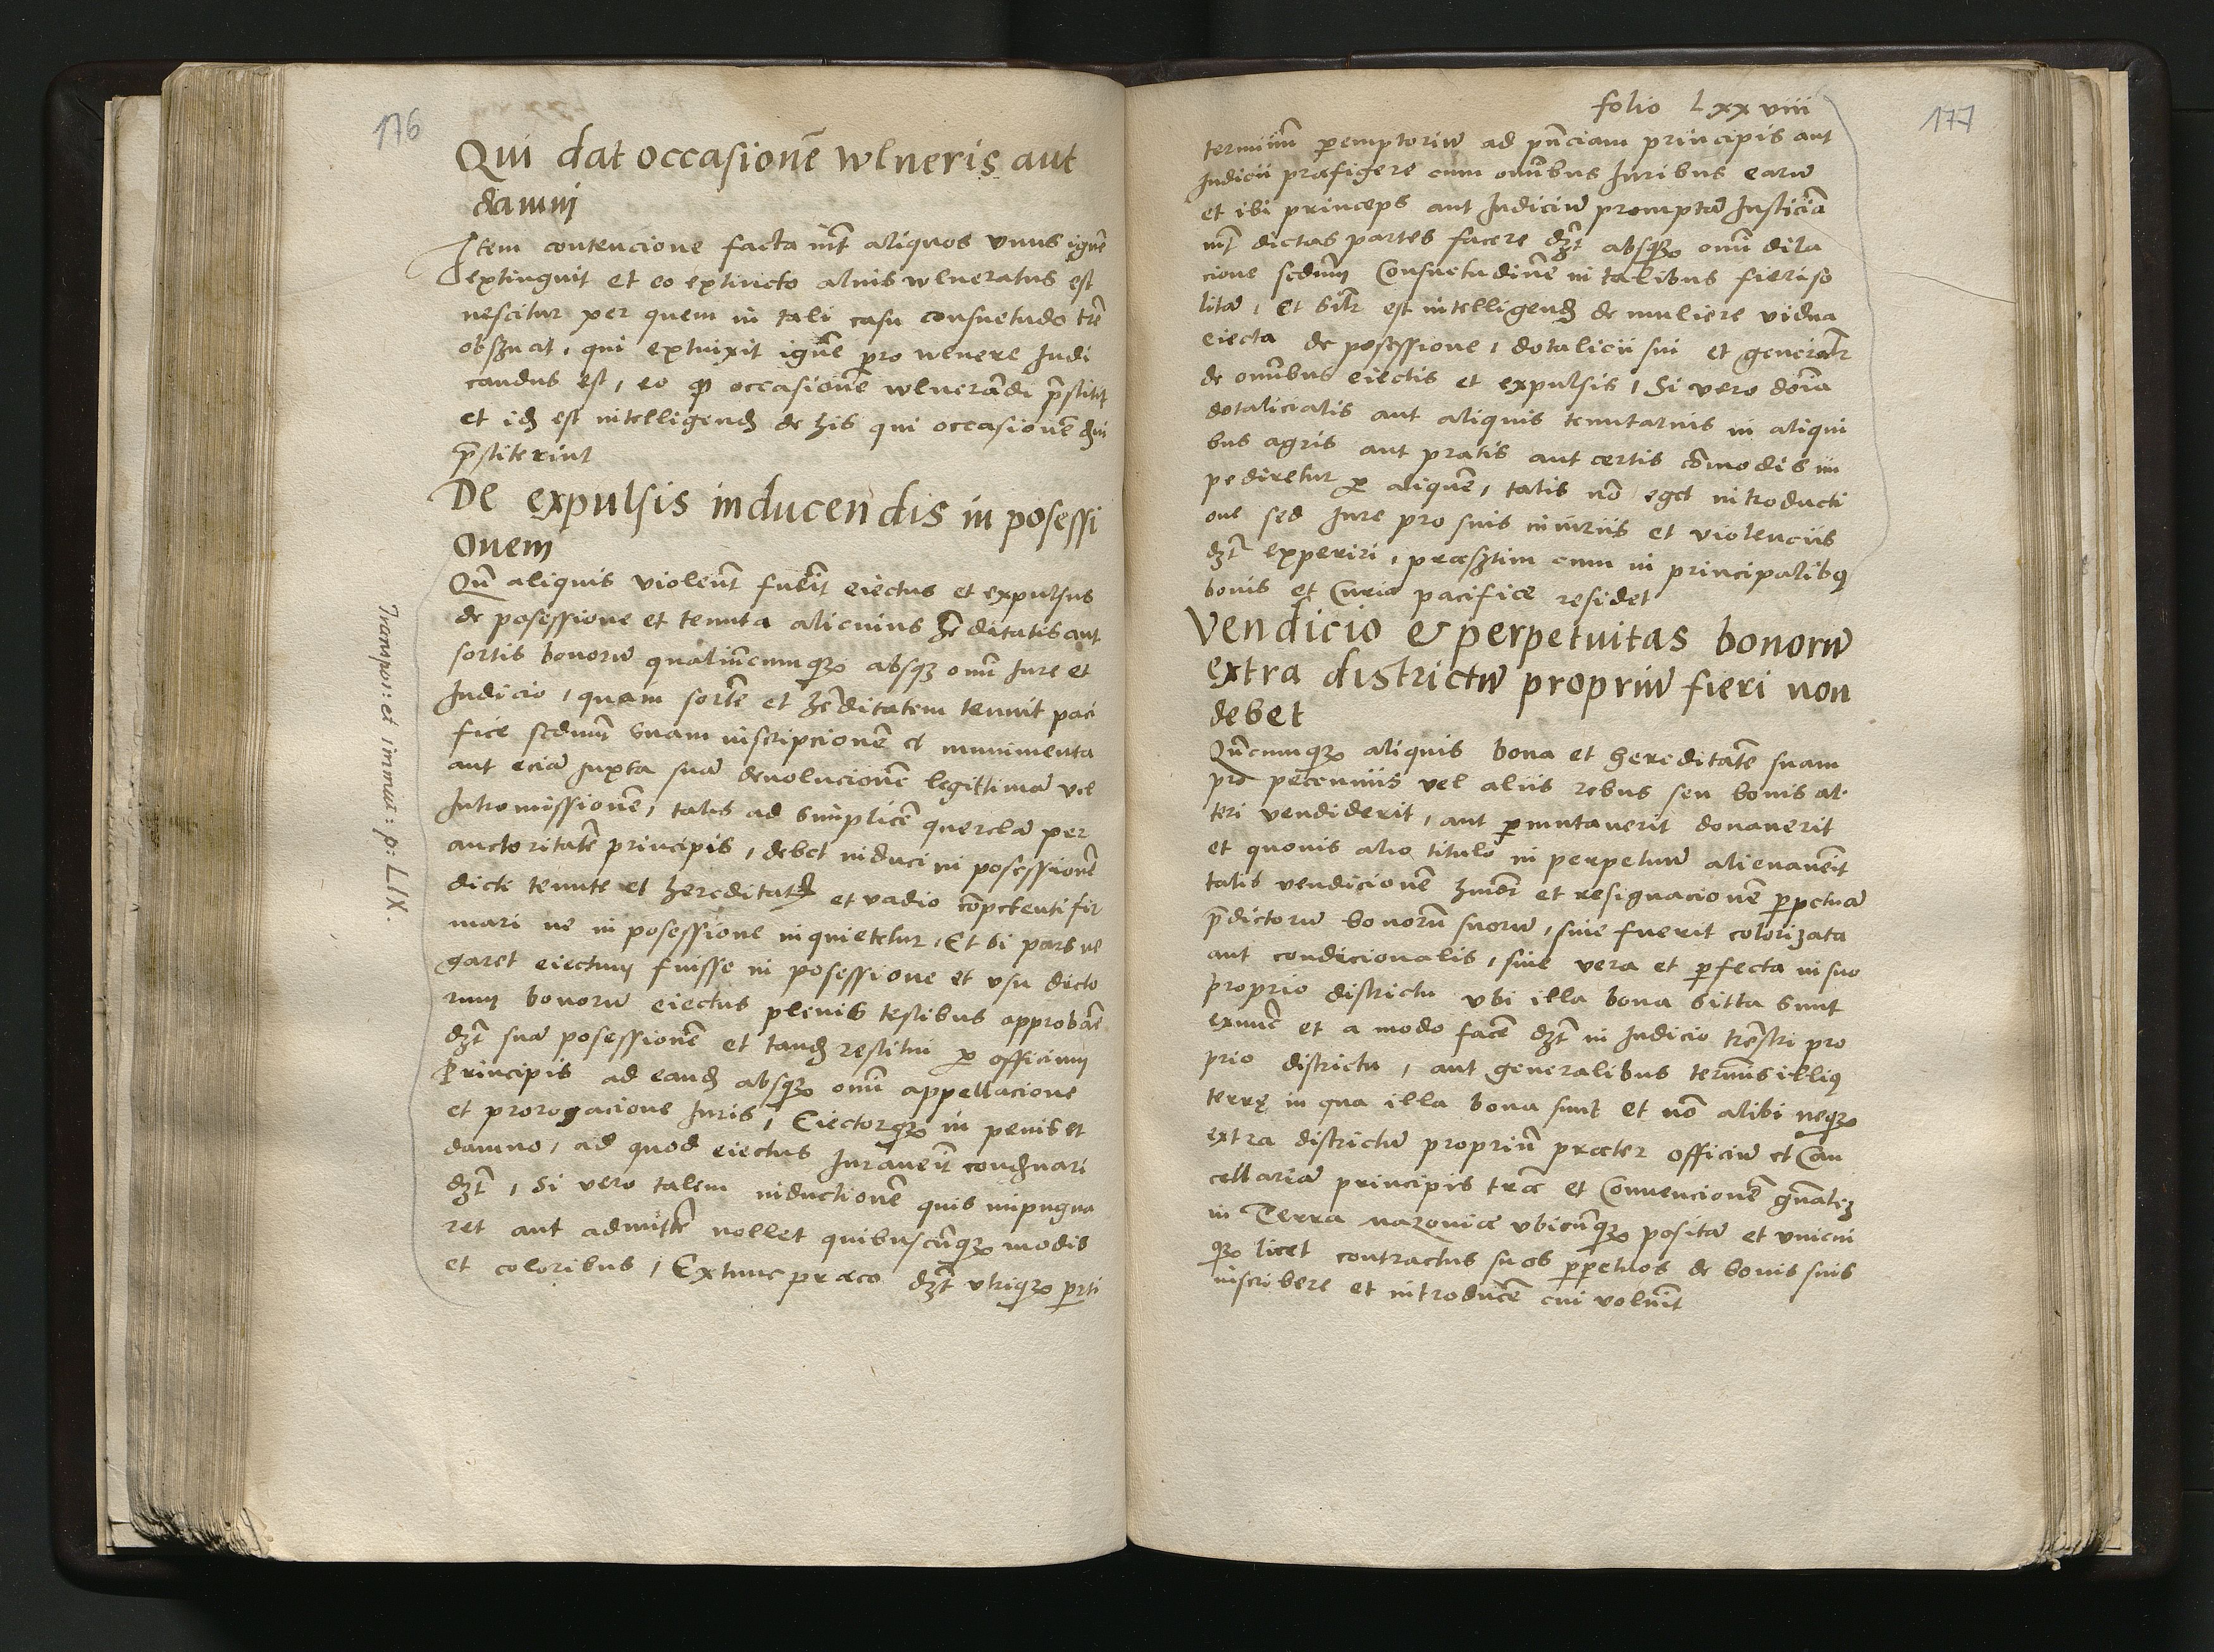 176
Qui dat occasionē wlneris aut
damnj
Item contencione facta int̄ aliquos vnus ignē
extinguit et eo extincto alius wlneratus est
nescitur per quem in tali casu consuetudo trē
obs̄uat, qui extinxit ignē pro wlnere Iudi
candus est, eo ꝙ occasionē wlnerādi p̄stitit
et idꝫ est intelligendꝫ de his qui occasionē dn̄i
p̄stiterint
De expulsis inducendis in posessi
onem
Qn̄ aliquis violent̄ fuēit eiectus et expulsus
de posessione et tenuta alicuius hēditatis aut
sortis bonorū qualiūcumqꝫ absqꝫ omī Iure et
Iudicio, quam sortē et hēditatem tenuit paci
fice scdum suam inscripcionē et munimenta
aut eciā iuxta suā deuolucionē legittimā vel
Intromissionē, talis ad simplicē querelā per
auctoritatē principis, debet induci in posessionē
dicte tenute et hereditatꝭ et vadio cōpetenti fir
mari ne in posessione inquietetur, Et si pars ne
garet eiectum fuisse in posessione et vsu dicto
rum bonorū eiectus plenis testibus approbāe
dꝫt̄ suā posessionē et tandꝫ restitui ꝑ officium
Principis ad eandꝫ absqꝫ omī appellacione
et prorogacione Iuris, Eiectorqꝫ in penis et
damno, ad quod eiectus Iurauēit condēnari
dꝫt̄, Si vero talem inductionē quis impugna
ret aut admittē nollet quibuscūqꝫ modis
et coloribus, Extunc præco dꝫt̄ vtriqꝫ parti
Transpoi: et immut: p: LIX.
folio Lxxviii
177
terminū ꝑemptoriū ad pn̄ciam principis aut
Iudicii præfigere cum omībus Iuribus earū
et ibi princeps aut Iudiciū promptā Iusticiā
int̄ dictas partes facere dꝫt̄ absqꝫ omī dila
cione scdum Consuetudinē in talibus fieri so
litā, Et silr̄ est intelligendꝫ de muliere vidua
eiecta de posessione, dotalicii sui et generalr̄
de omībus eiectis et expulsis, Si vero doīa
dotalicialis aut aliquis tenutarius in aliqui
bus agris aut pratis aut certis cōmodis im
pediretur ꝑ aliquē, talis nō eget introducti
one sed Iure pro suis iniuriis et violenciis
dꝫt̄ experiri, præsētim cum in principalibꝰ
bonis et Curia pacifice residet
Vendicio & perpetuitas bonorū
extra districtū propriū fieri non
debet
Qn̄cumqꝫ aliquis bona et hereditatē suam
pro pecuniis vel aliis rebus seu bonis al
teri vendiderit, aut ꝑmutauerit donauerit
et quouis alio titulo in perpetuū alienauēit
talis vendicionē hm̄oi et resignacionē ꝑpetuā
p̄dictorū bonorū suorū, siue fuerit colorizata
aut condicionalis, siue vera et ꝑfecta in suo
proprio districtu vbi illa bona sitta sunt
exnūc et a modo facē dꝫt̄ in Iudicio trēstri pro
prio districtu, aut generalibus termīs illiꝰ
terrę in qua illa bona sunt et nō alibi neqꝫ
extra districtū propriū præter officiū et Can
cellariā principis træ et Conuencionē gn̄alē
in Terra mazouiæ vbicūqꝫ positā et vnicui
qꝫ licet contractus suos ꝑpetuos de bonis suis
inscribere et introducē cui voluēit